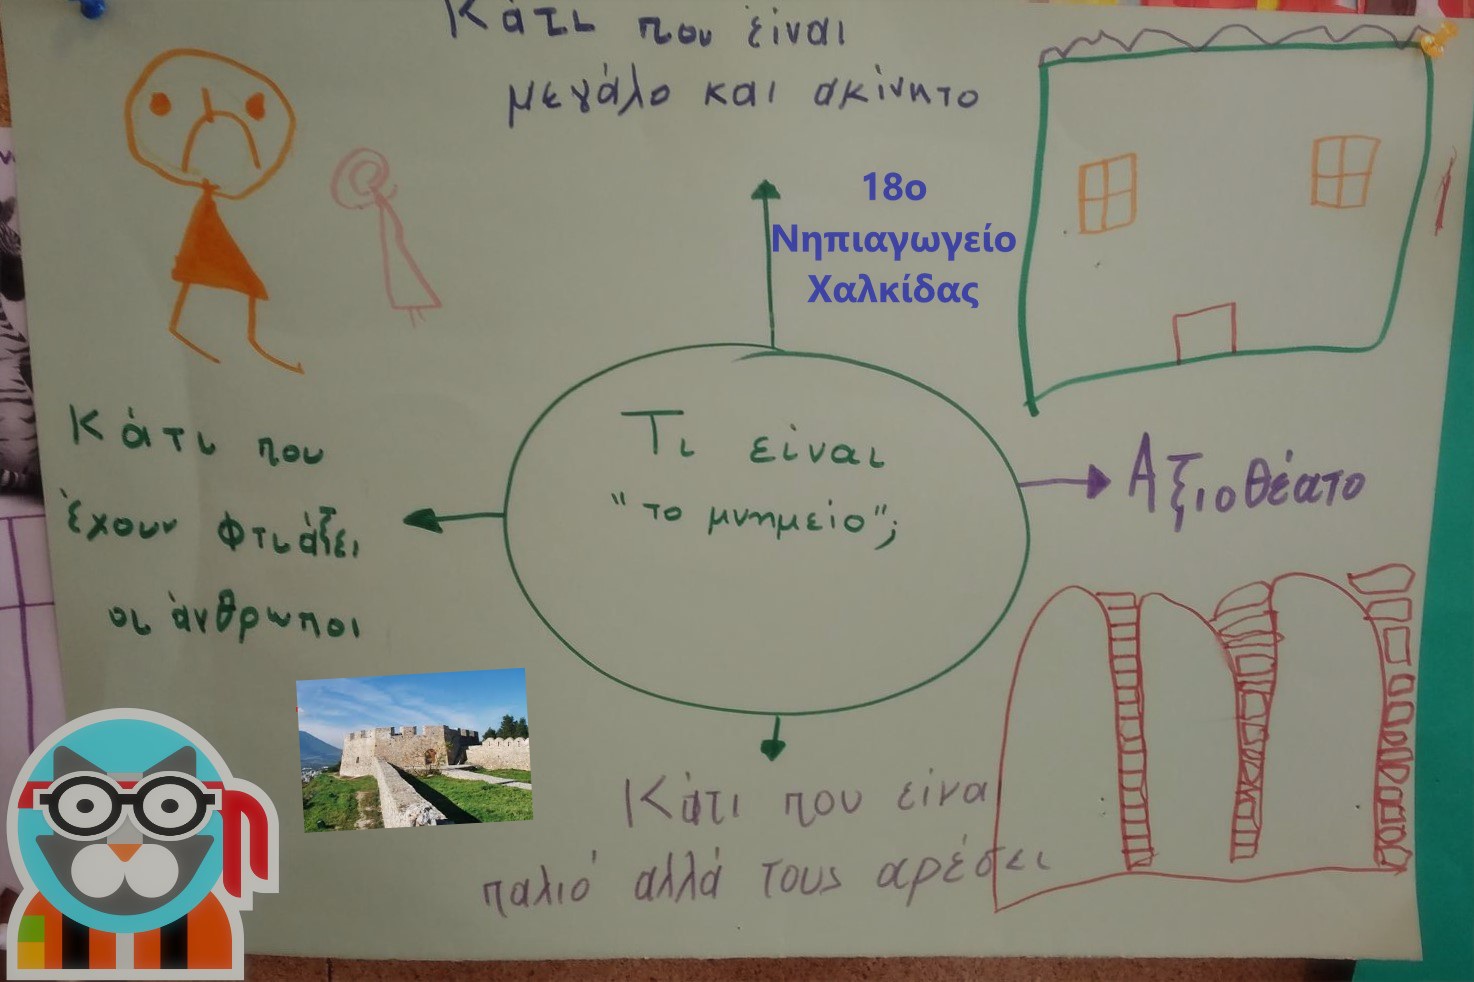 Κάτι που είναι
μεγάλο και ακίνητο
18ο
Νηπιαγωγείο
Χαλκίδας
Κάτι που
έχουν φτιάξει
οι άνθρωποι
Τι είναι
"το μνημείο";
Αξιοθέατο
Κάτι που είναι
παλιό αλλά τους αρέσει